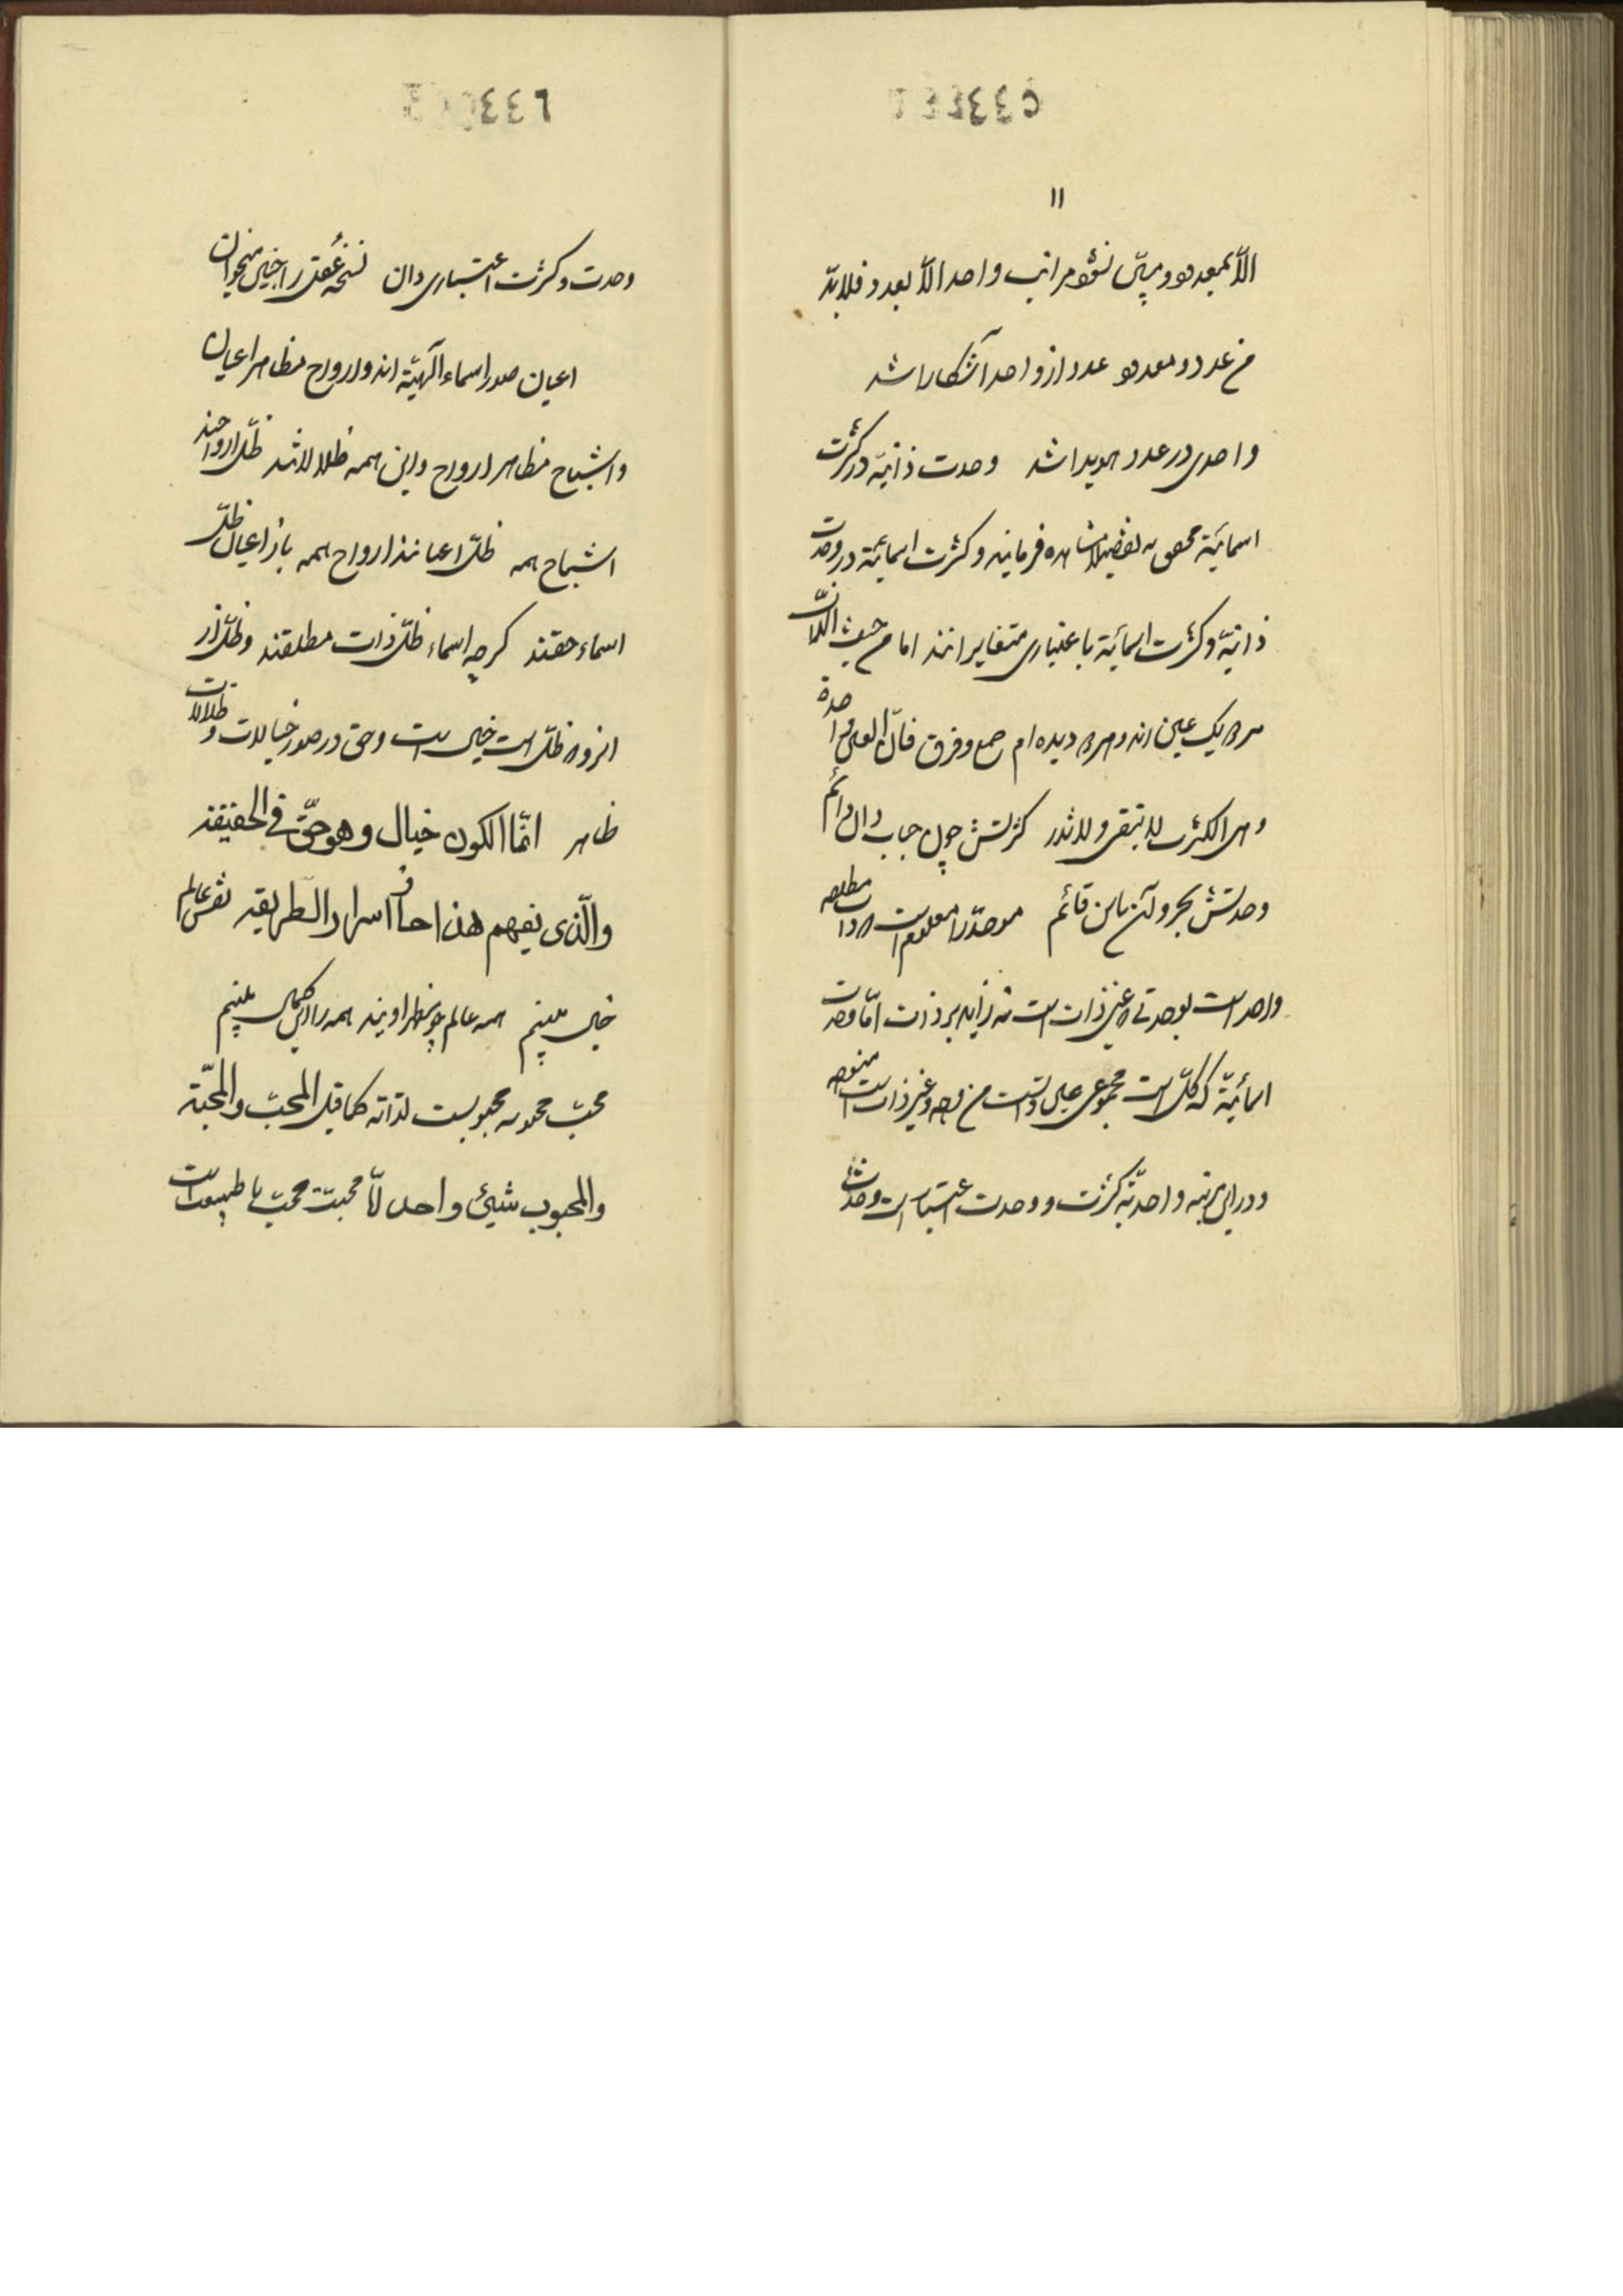 ۱۱
الّا بمعدود و مبیّن نشود مراتب واحد الّا بعدد فلابدّ
من عدد و معدود عدد از واحد آشکارا شد
واحدی در عدد هویدا شد وحدت ذاتیّه در کثرت
اسمائیّة مشاهده فرمایند و کثرت اسمائیّة در وحدت
ذاتیّه و کثرت اسمائیّة باعتباری متغایرانند اما من حیث الذّات
هر دو یک عین اند و هر دو دیده ام جمع و فرق فانّ العین واحدة
وهی الکثرت لاتبقی ولاتذر کثرتش چون حباب دان دائم
وحدتش بحر و آن باین قائم موحّد را معلوم است که ذات مطلقه
واحد است بوحدتی که عین ذات است نه زاید بر ذات امّا وحدت
اسمائیّة که کلّ است مجموعی عین ذاتست من وجه و غیر ذات است من وجه
و در این مرتبه واحدیّه کثرت و وحدت اعتباریست وحدتش
وحدت و کثرت اعتباری دان نسخهٔ عقل را خیال میخوان
اعیان صور اسماء الهیّة اند و ارواح مظاهر اعیان
و اشباح مظاهر ارواح و این همه ظلالاتند ظلّ ارواحند
اشباح همه ظلّ اعیانند ارواح همه باز اعیان ظلّ
اسماء حقند گرچه اسماء ظلّ ذات مطلقند و ظلّ از
آنرو که ظلّ است خیال است و حق در صور خیالات و ظلالات
ظاهر انّما الکون خیال وهو حقّ فی الحقیقة
والّذی یفهم هذا حاز اسرار الطریقه نقش عالم
خیال می‌بینم همه عالم چو مظهر اویند همه را در کمال می‌بینم
محبّ محمدی محبوبیست لذاته کما قیل المحبّ والمحبّة
والمحبوب شیئ واحد امّا محبّت محبّ یا طبیعی است